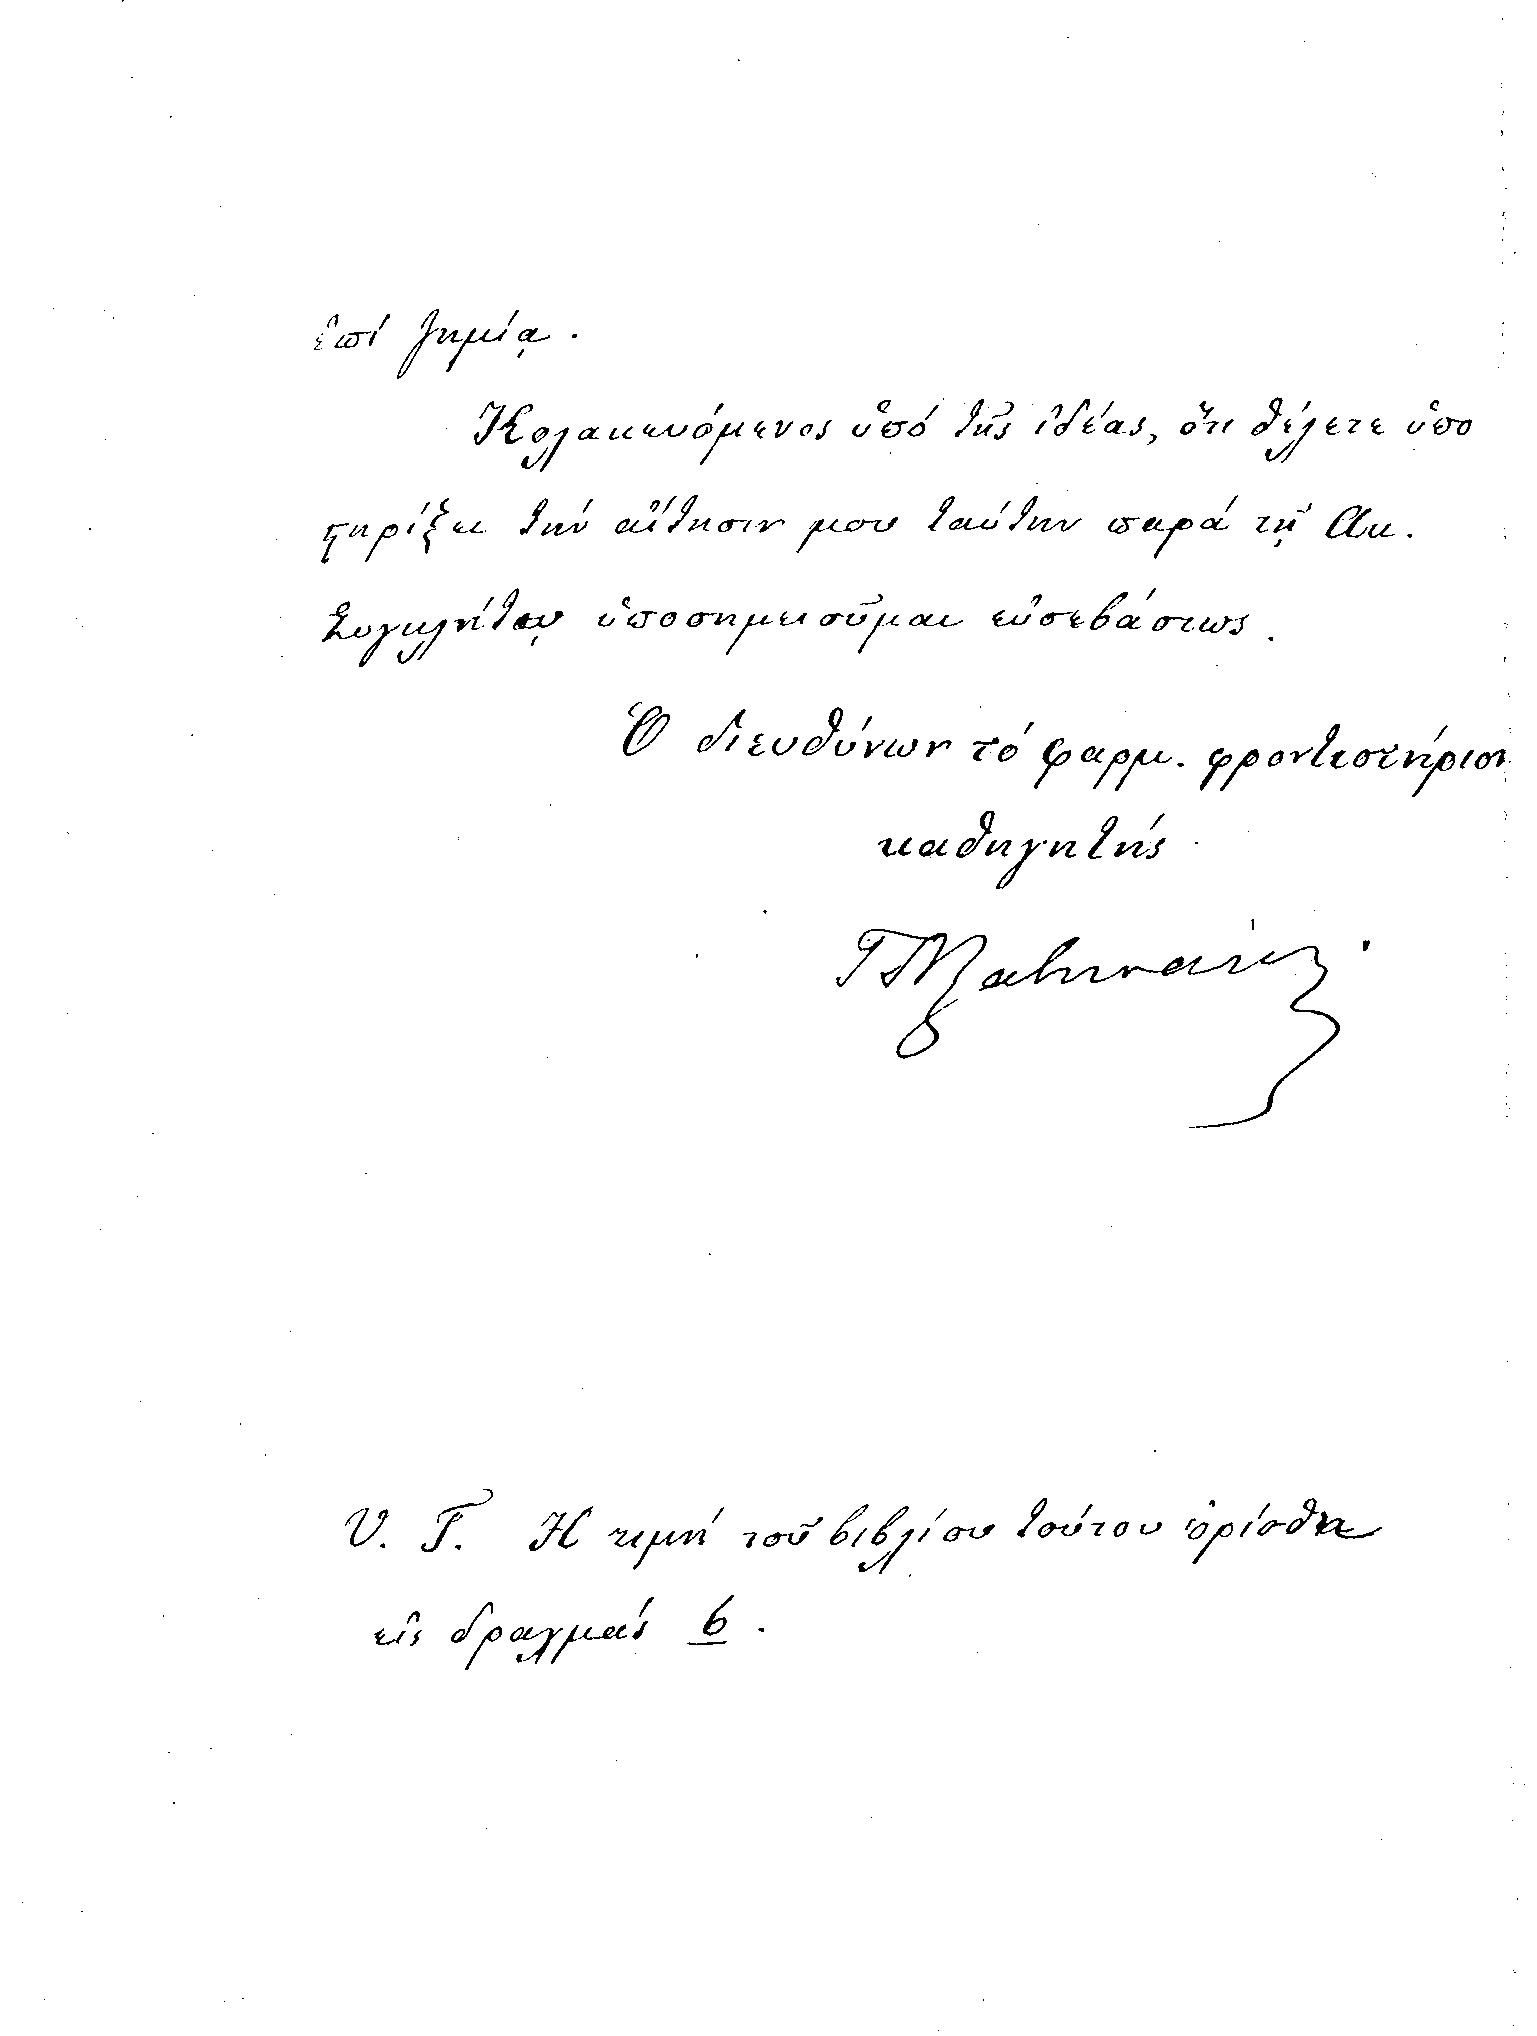 ἐπὶ ζημίᾳ.
Κολακευόμενος ὑπό τῆς ἰδέας, ὅτι θέλετε ὑπο
στηρίξει τήν αἴτησιν μου ταύτην παρά τῇ Ακ.
Συγκλήτῳ ὑποσημειοῦμαι εὐσεβάστως.
Ὁ διευθύνων τό φαρμ. φροντιστήριον
καθηγητής
Υ. Γ. Η τιμή τοῦ βιβλίου τούτου ὁρίσθη
εἰς δραχμάς 6.